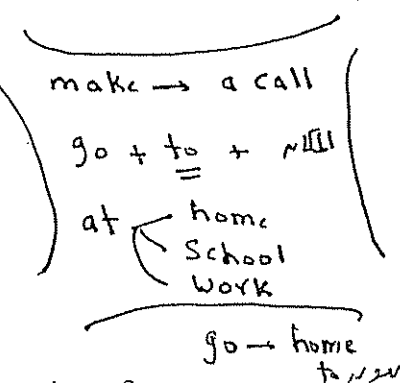 make → a call
go + to +
at home
School
Work
go → home